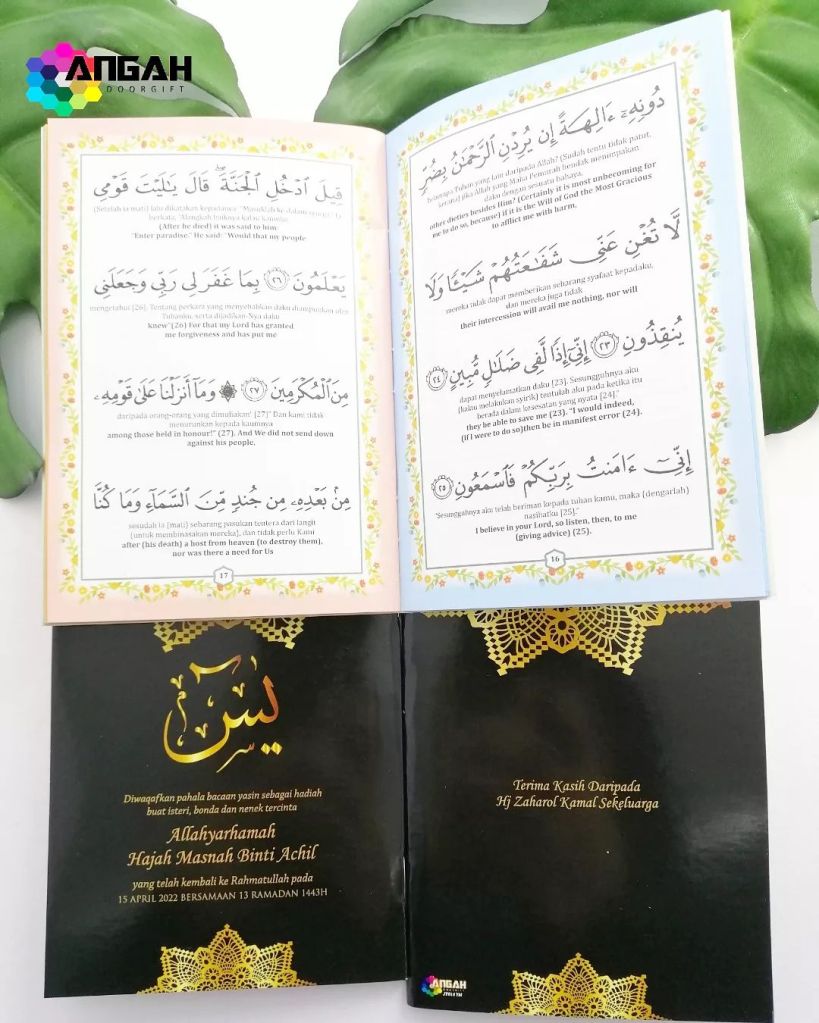 ANGAH
DOORGIFT
دُونِهِۦٓ ءَالِهَةً إِن يُرِدْنِ ٱلرَّحْمَٰنُ بِضُرٍّ
beberapa Tuhan yang lain daripada Allah? (Sudah tentu tidak patut,
kerana) jika Allah yang Maha Pemurah hendak menimpakan
daku dengan sesuatu bahaya,
other dieties besides Him? (Certainly it is most unbecoming for
me to do so, because) if it is the Will of God the Most Gracious
to afflict me with harm,
لَّا تُغْنِ عَنِّى شَفَٰعَتُهُمْ شَيْـًٔا وَلَا
mereka tidak dapat memberikan sebarang syafaat kepadaku,
dan mereka juga tidak
their intercession will avail me nothing, nor will
يُنقِذُونِ ٢٣ إِنِّىٓ إِذًا لَّفِى ضَلَٰلٍ مُّبِينٍ ٢٤
dapat menyelamatkan daku [23]. Sesungguhnya aku
(kalau melakukan syirik) tentulah aku pada ketika itu
berada dalam kesesatan yang nyata [24]."
they be able to save me (23). "I would indeed,
(if I were to do so)then be in manifest error (24).
إِنِّىٓ ءَامَنتُ بِرَبِّكُمْ فَٱسْمَعُونِ ٢٥
'Sesungguhnya aku telah beriman kepada tuhan kamu, maka (dengarlah)
nasihatku [25]."
I believe in your Lord, so listen, then, to me
(giving advice) (25).
16
قِيلَ ٱدْخُلِ ٱلْجَنَّةَ ۖ قَالَ يَٰلَيْتَ قَوْمِى
(Setelah ia mati) lalu dikatakan kepadanya: "Masuklah ke dalam syurga". Ia
berkata; "Alangkah baiknya kalau kaumku
(After he died) it was said to him
"Enter paradise." He said: "Would that my people
يَعْلَمُونَ ٢٦ بِمَا غَفَرَ لِى رَبِّى وَجَعَلَنِى
mengetahui [26]. Tentang perkara yang menyebabkan daku diampunkan oleh
Tuhanku, serta dijadikan-Nya daku
knew"(26) For that my Lord has granted
me forgiveness and has put me
مِنَ ٱلْمُكْرَمِينَ ٢٧ وَمَآ أَنزَلْنَا عَلَىٰ قَوْمِهِۦ
daripada orang-orang yang dimuliakan' [27]" Dan kami tidak
menurunkan kepada kaumnya
among those held in honour!" (27). And We did not send down
against his people.
مِنۢ بَعْدِهِۦ مِن جُندٍ مِّنَ ٱلسَّمَآءِ وَمَا كُنَّا
sesudah ia [mati] sebarang pasukan tentera dari langit
(untuk membinasakan mereka), dan tidak perlu Kami
after (his death) a host from heaven (to destroy them),
nor was there a need for Us
17
يس
Diwaqafkan pahala bacaan yasin sebagai hadiah
buat isteri, bonda dan nenek tercinta
Allahyarhamah
Hajah Masnah Binti Achil
yang telah kembali ke Rahmatullah pada
15 APRIL 2022 BERSAMAAN 13 RAMADAN 1443H
Terima Kasih Daripada
Hj Zaharol Kamal Sekeluarga
ANGAH